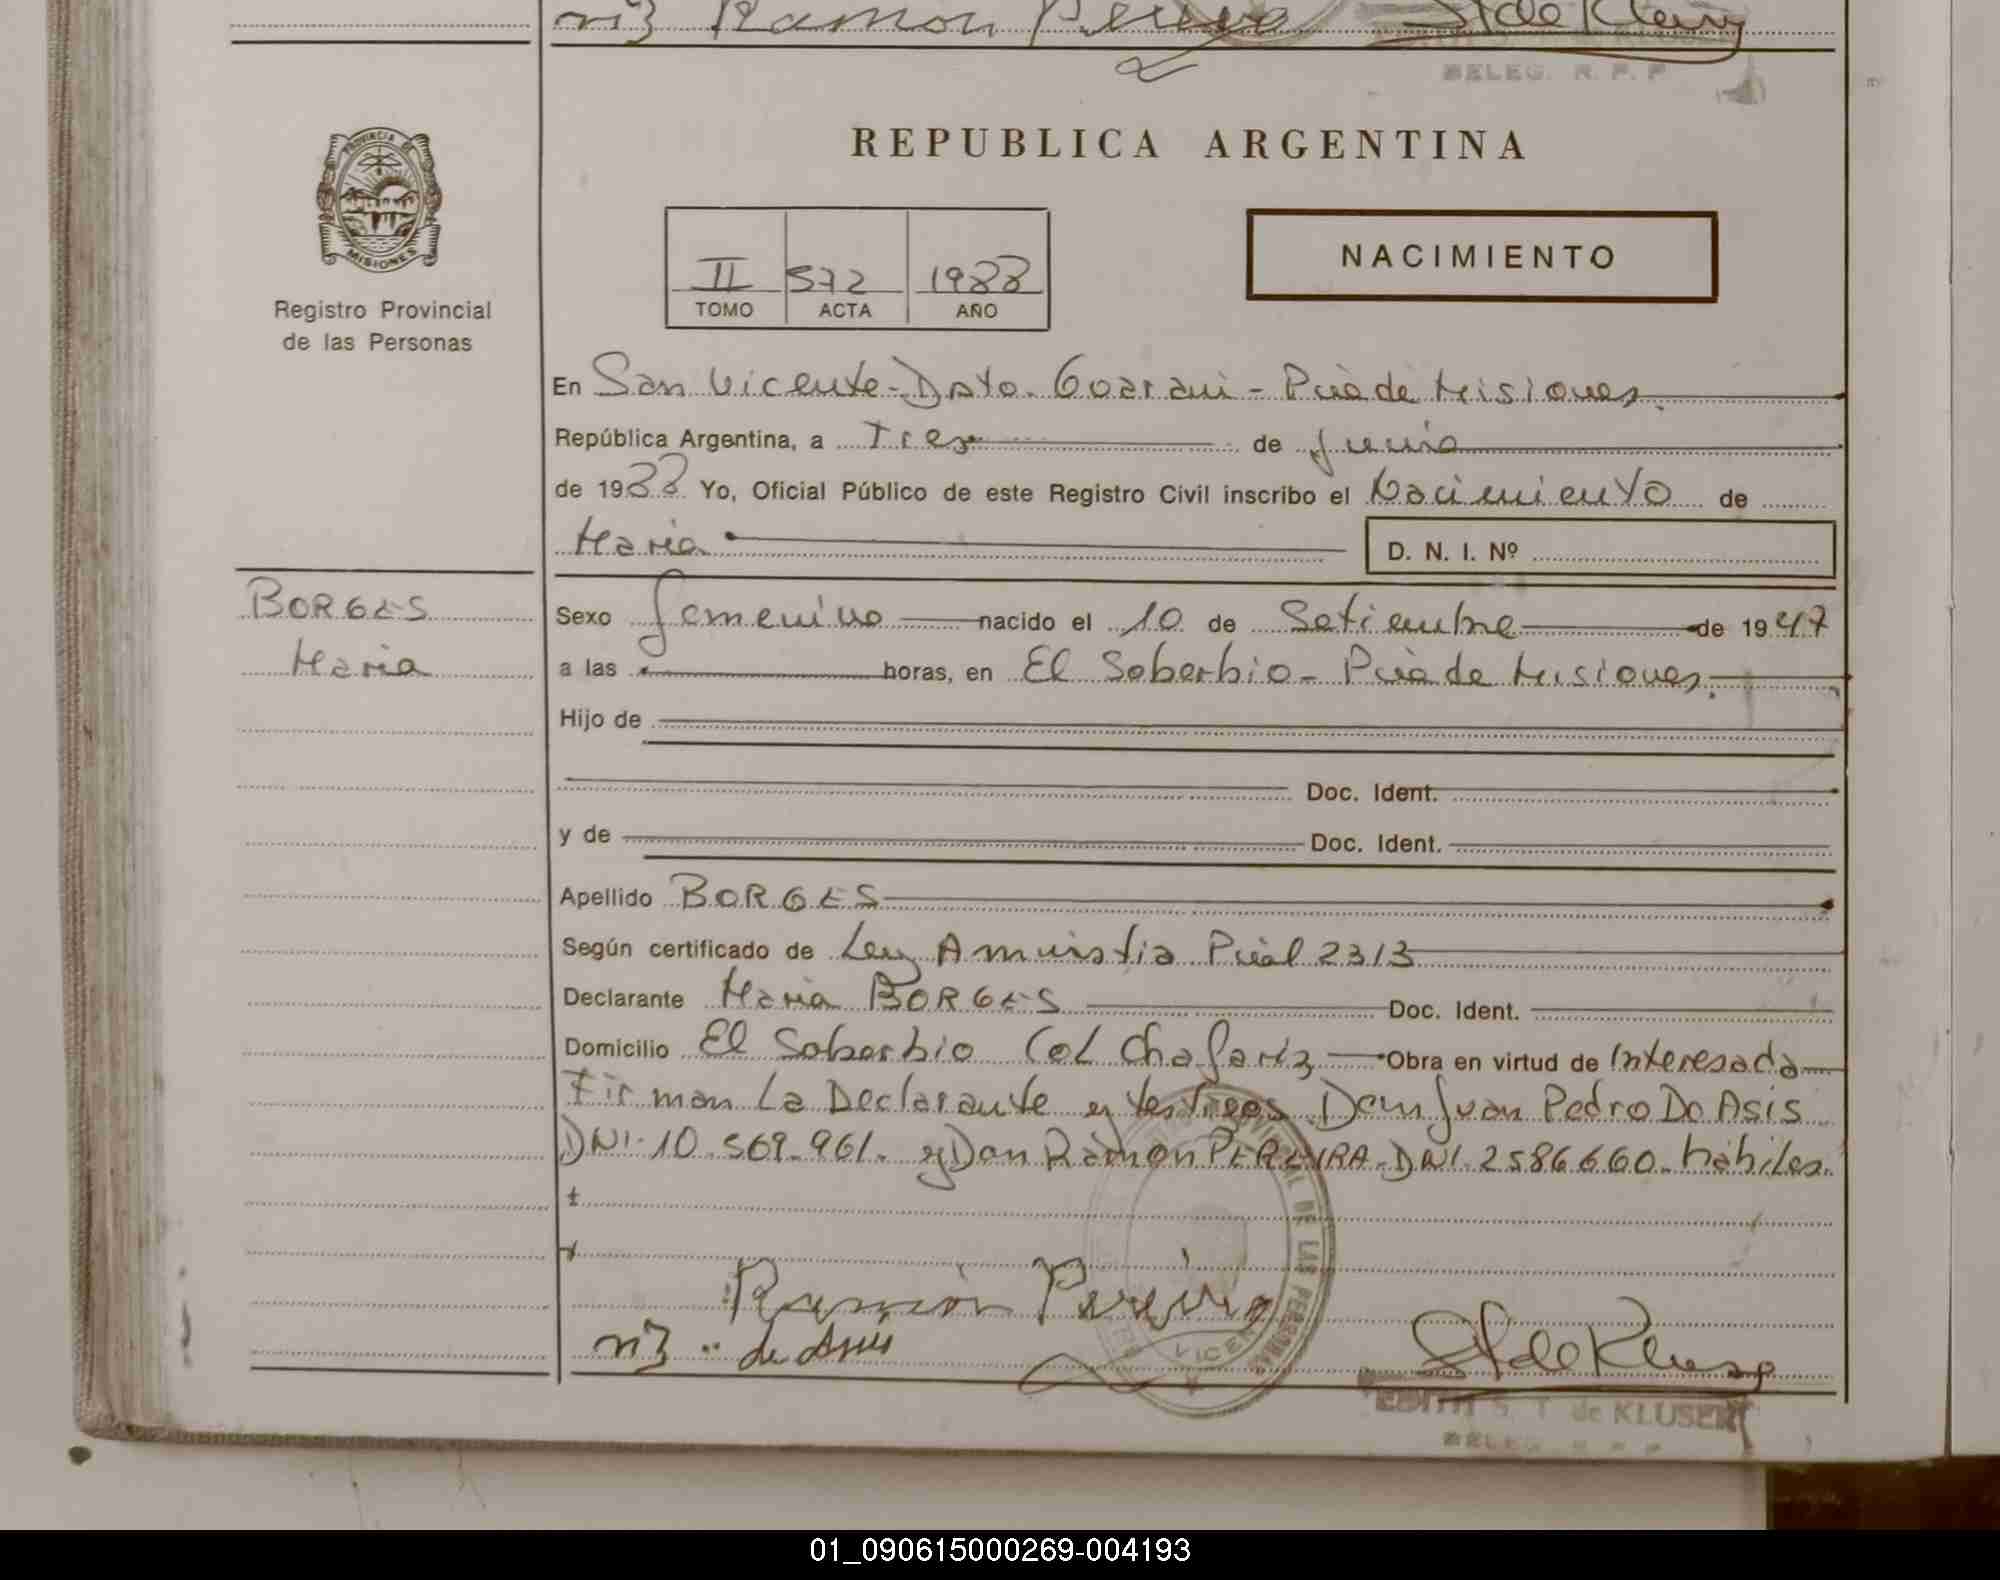 Ramón Pereira
BELEG. R. P. P
PROVINCIA DE
MISIONES
Registro Provincial
de las Personas
REPUBLICA ARGENTINA
II 572 1988
TOMO ACTA AÑO
NACIMIENTO
En San Vicente - Dpto. Guarani - Pcia de Misiones.
República Argentina, a Tres de Junio
de 1988 Yo, Oficial Público de este Registro Civil inscribo el Nacimiento de
Maria D. N. I. Nº
BORGES
Maria
Sexo femenino nacido el 10 de Setiembre de 1947
a las horas, en El Soberbio - Pcia de Misiones.
Hijo de
Doc. Ident.
y de Doc. Ident.
Apellido BORGES
Según certificado de Ley Amnistia Pcial 2313
Declarante Maria BORGES Doc. Ident.
Domicilio El Soberbio Col Chafariz Obra en virtud de Interesada
Firman La Declarante y testigos Don Juan Pedro Do Asis
DNI. 10.569.961. y Don Ramon PEREIRA - DNI. 2586660. habiles.
Ramón Pereira
de Asis
VICEN
DE LAS PERSONAS
EDITH S. T. de KLUSER
BELEG. R. P. P
01_090615000269-004193